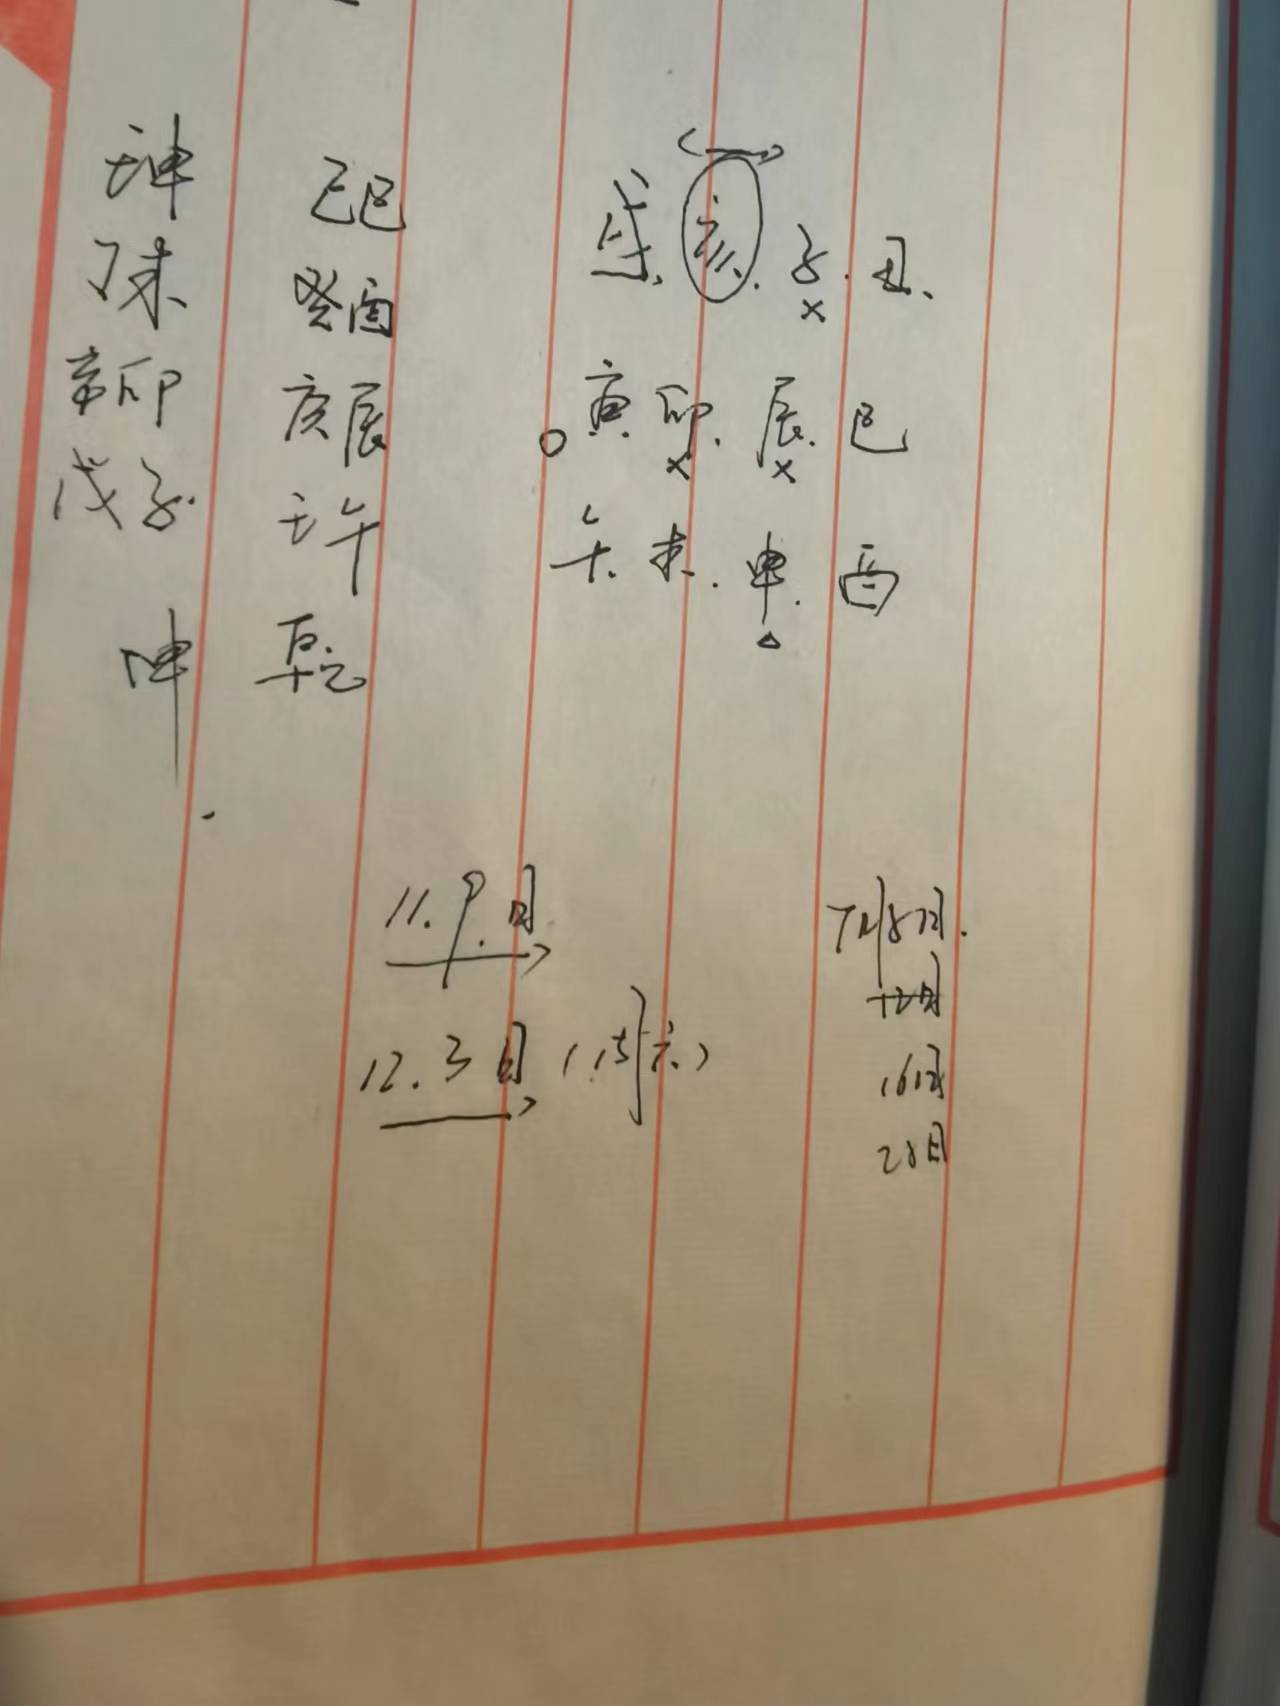 壬申
丁未
辛卯
戊子
坤
己巳
癸酉
庚辰
壬午
乾
戌.亥.子.丑.
x
寅.卯.辰.巳
x x
午.未.申.酉
11.9.日
12.3日(周六)
7月8日.
12日
16日
28日